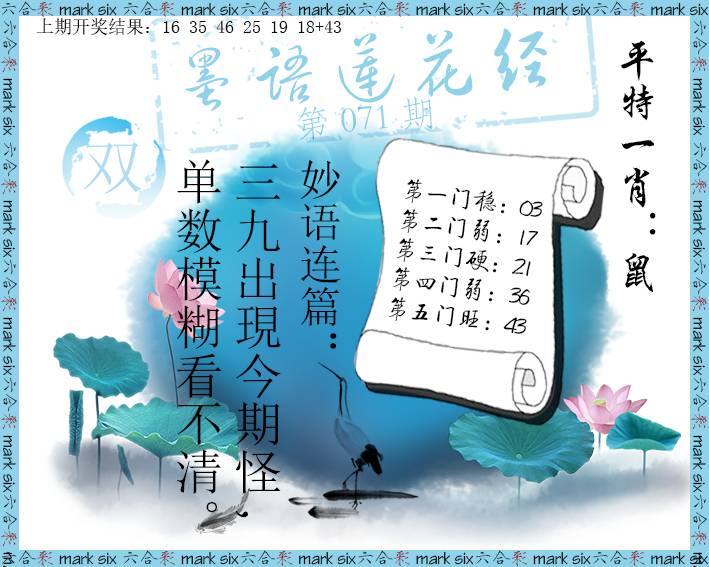 上期开奖结果: 16 35 46 25 19 18+43
墨語蓮花经
第 071 期
双
平特一肖：鼠
妙语连篇：
三九出現今期怪、
单数模糊看不清。
第一门稳：03
第二门弱：17
第三门硬：21
第四门弱：36
第五门旺：43
mark six 六合彩 mark six 六合彩 mark six 六合彩 mark six 六合彩 mark six 六合彩